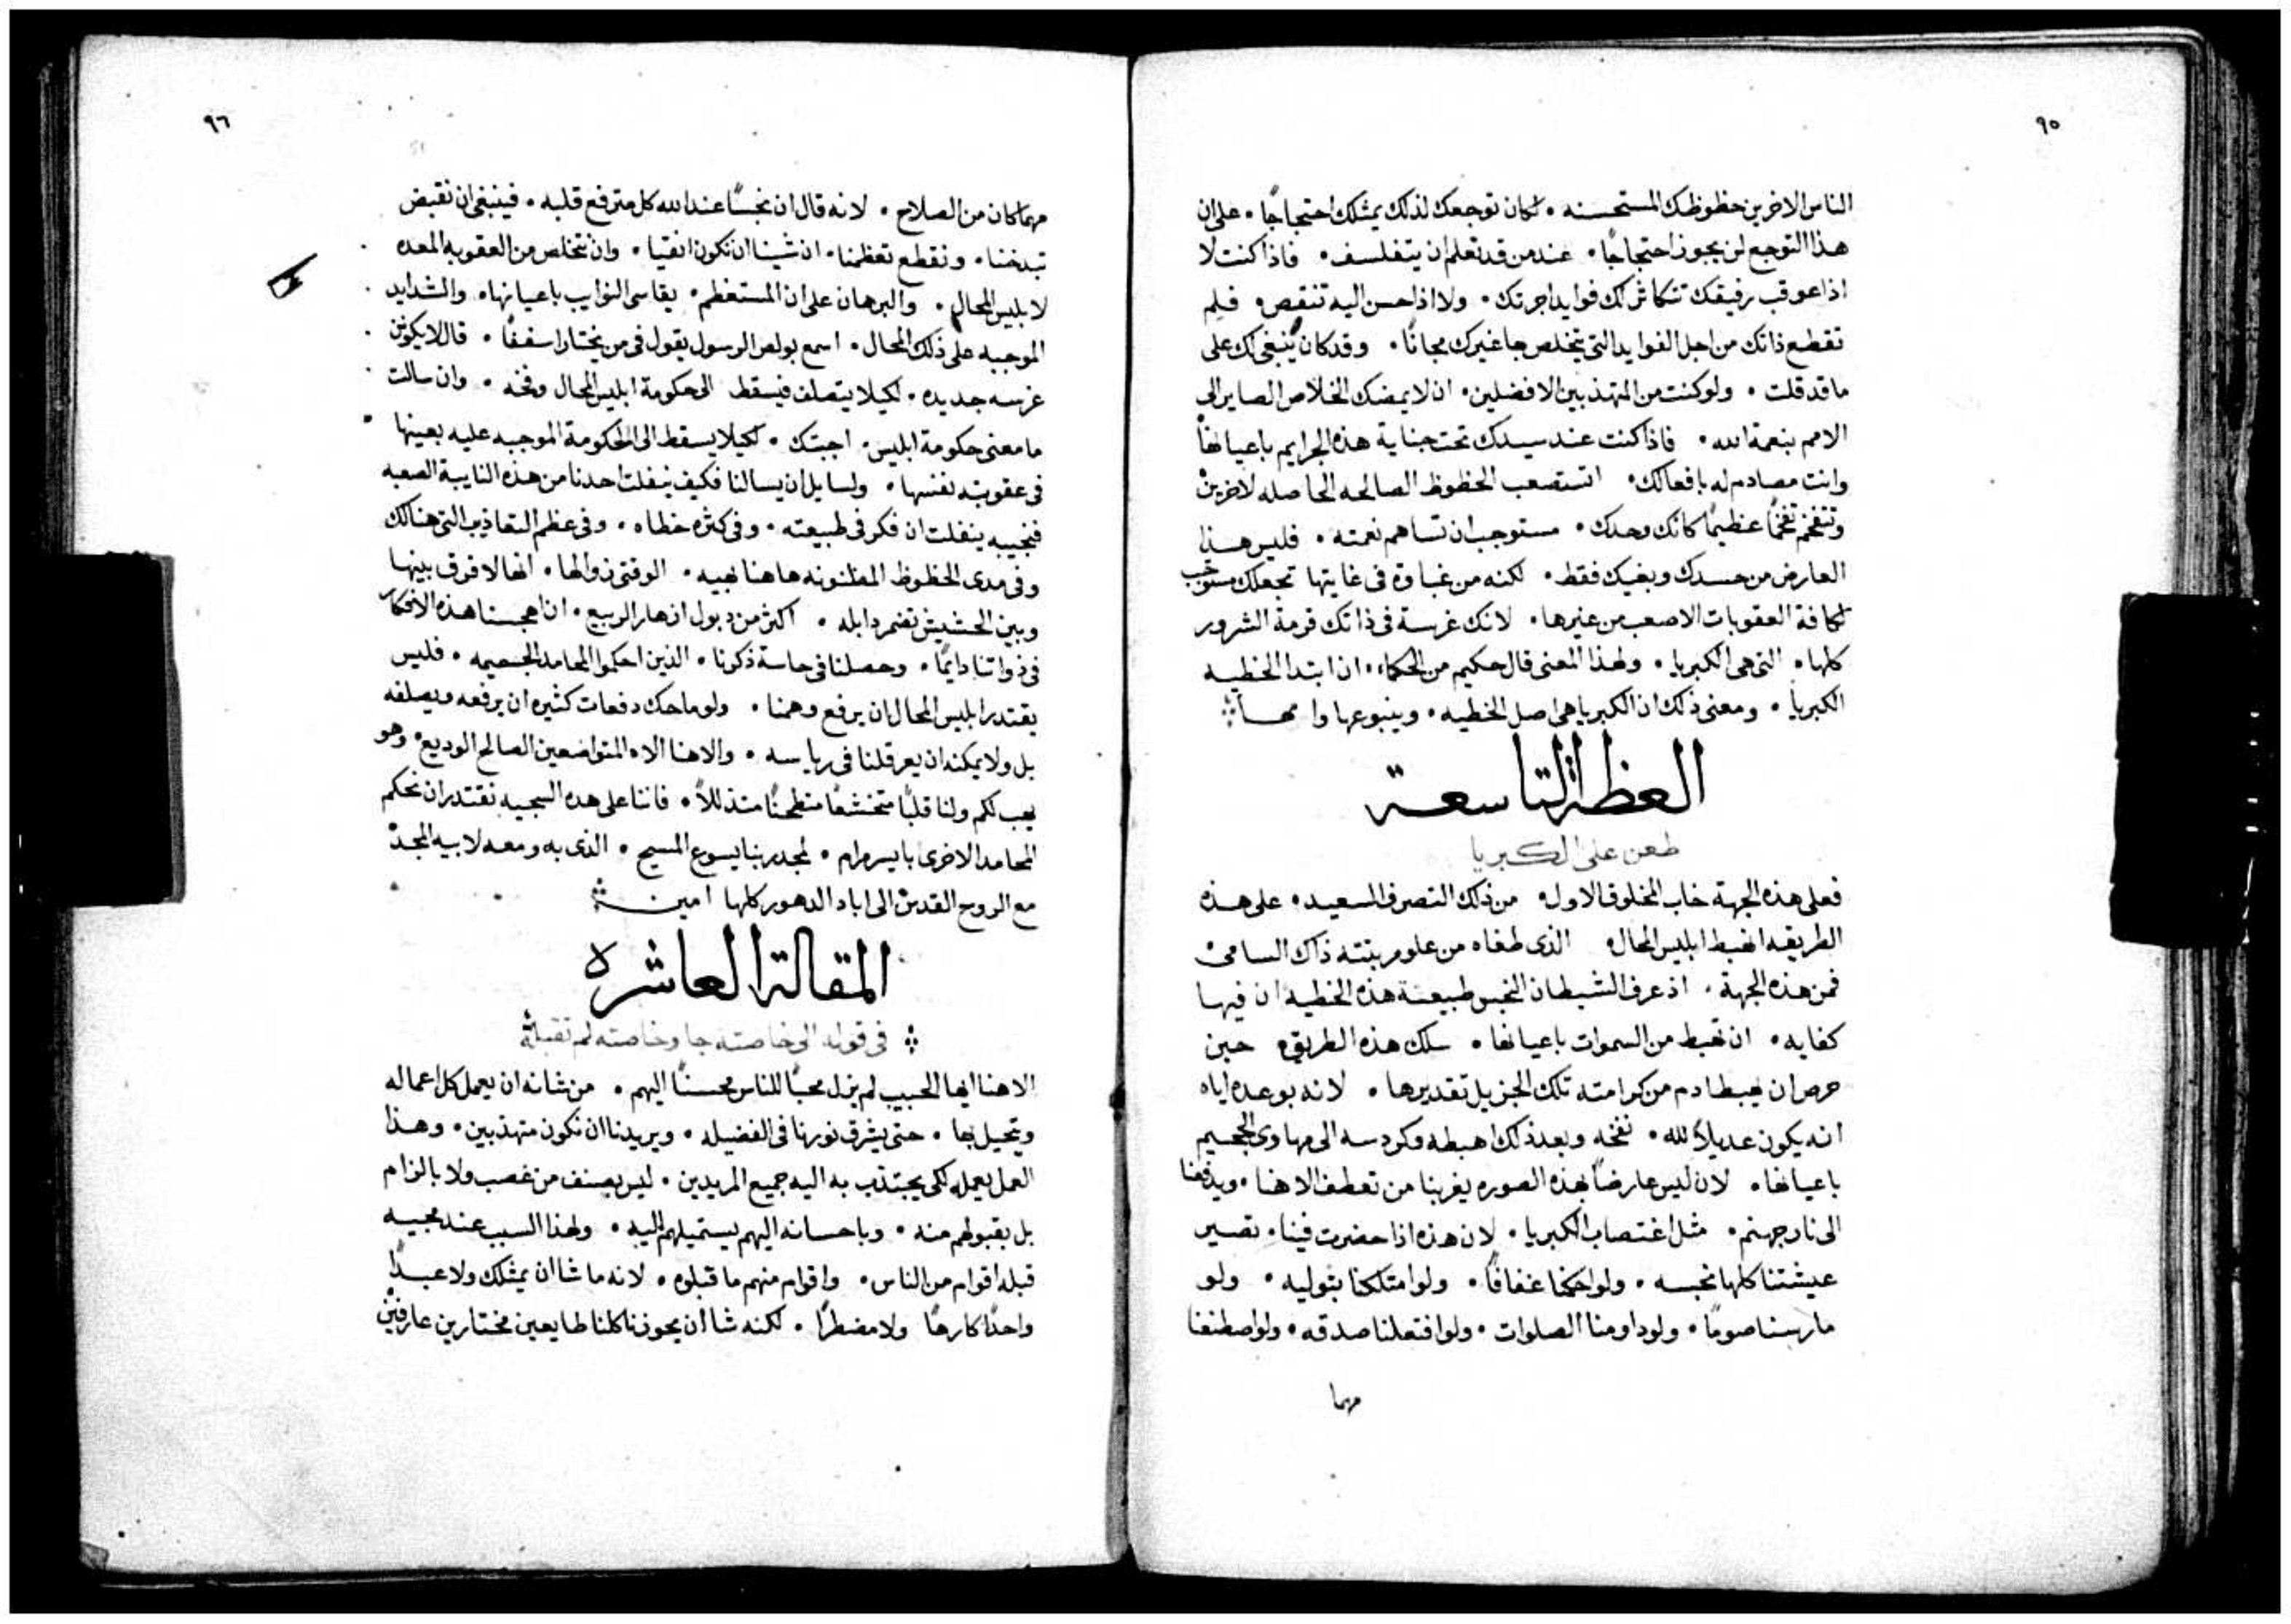 ٩٥
الناس الاخرين حظوظك المستحسنه • لكان توجعك لذلك يمثلك احتجاجًا • على ان
هذا التوجع لن يجوز احتجاجًا • عند من قد تعلم ان يتفلسف • فاذا كنت لا
اذا عوقب رفيقك تتكاثر لك فوايد اجرتك • ولا اذا احسن اليه تنقص • فلم
تقطع ذاتك من اجل الفوايد التي يتخلص بها غيرك مجانًا • وقد كان ينبغي لك على
ما قد قلت • ولو كنت من المتهذبين الافضلين • ان لا يمضك الخلاص الصاير الى
الامم بنعمة الله • فاذا كنت عند سيدك تحت جناية هذه الجرايم باعيانها
وانت مصادم له بافعالك • اتستصعب الحظوظ الصالحه الحاصله لاخرين
وتتفخم تفخمًا عظيمًا كانك وحدك • مستوجب ان تساهم نعمته • فليس هذا
العارض من حسدك وبغيك فقط • لكنه من غباوة في غايتها تجعلك مستوجب
لكافة العقوبات الاصعب من غيرها • لانك غرسة في ذاتك قرمة الشرور
كلها • التي هي الكبريا • ولهذا المعنى قال حكيم من الحكماء • ان ابتدا الخطيه
الكبريا • ومعنى ذلك ان الكبريا هي اصل الخطيه • وينبوعها وامها
العظة التاسعة
طعن على الكبريا
فعلى هذه الجهة خاب المخلوق الاول • من ذلك التصرف السعيد • على هذه
الطريقه اهبط ابليس المحال • الذي طغاه من علو مرتبته ذاك السامي
فمن هذه الجهة • اذ عرف الشيطان النجس طبيعة هذه الخطيه ان فيها
كفايه • ان تهبط من السموات باعيانها • سلك هذه الطريق • حين
حرص ان يهبط ادم من كرامته تلك الجزيل تقديرها • لانه بوعده اياه
انه يكون عديلاً لله • نفخه وبعد ذلك اهبطه وكردسه الى مهاوي الجحيم
باعيانها • لان ليس عارضًا بهذه الصوره يغربنا من تعطف الاهنا • ويدفعنا
الى نار جهنم • مثل اغتصاب الكبريا • لان هذه اذا حضرت فينا • تصير
عيشتنا كلها نجسه • ولو احكمنا عفافًا • ولو امتلكنا بتوليه • ولو
مارسنا صومًا • ولو داومنا الصلوات • ولو افتعلنا صدقه • ولو اصطنعنا
مهما
٩٦
مهما كان من الصلاح • لانه قال ان نجسًا عند الله كل مترفع قلبه • فينبغي ان نقبض
تبذخنا • ونقطع تعظمنا • ان شينا ان نكون انقيا • وان نتخلص من العقوبه المعده
لابليس المحال • والبرهان على ان المستعظم • يقاسي النوايب باعيانها • والشدايد
الموجبه على ذلك المحال • اسمع بولص الرسول يقول في من يختار اسقفًا • قال لا يكونن
غرسه جديده • لكيلا يتصلف فيسقط الى حكومة ابليس المحال وفخه • وان سالت
ما معنى حكومة ابليس • اجبتك • لكيلا يسقط الى الحكومة الموجبه عليه بعينها
في عقوبته نفسها • ولسايل ان يسالنا فكيف ينفلت احدنا من هذه النايبة الصعبه
فنجيبه ينفلت ان فكر في طبيعته • وفي كثرة خطاه • وفي عظم التعاذيب التي هنالك
وفي مدى الحظوظ المظنونه هاهنا بهيه • الوقتي زوالها • انها لا فرق بينها
وبين الحشيش تضمر دابله • اكثر من دبول ازهار الربيع • ان اهجسنا هذه الافكار
في ذواتنا دايمًا • وحصلنا في حاسة ذكرنا • الذين احكموا المحامد الجسيمه • فليس
يقتدر ابليس المحال ان يرفع وهمنا • ولو ماحك دفعات كثيره ان يرفعه ويصلفه
بل ولا يمكنه ان يعرقلنا في رياسه • والاهنا الاه المتواضعين الصالح الوديع • وهو
يهب لكم ولنا قلبًا متخشعًا منطحنًا متذللاً • فاننا على هذه السجيه نقتدر ان نحكم
المحامد الاخرى بايسر مرام • لمجد ربنا يسوع المسيح • الذي به ومعه لابيه المجد
مع الروح القدس الى اباد الدهور كلها امين
المقالة العاشره
في قوله الى خاصته جا وخاصته لم تقبله
الاهنا ايها الحبيب لم يزل محبًا للناس محسنًا اليهم • من شانه ان يعمل كل اعماله
ويتحيل بها • حتى يشرق نورنا في الفضيله • ويريدنا ان نكون متهذبين • وهذا
العمل يعمله لكي يجتذب به اليه جميع المريدين • ليس بعنف من غصب ولا بالزام
بل بقبولهم منه • وباحسانه اليهم يستميلهم اليه • ولهذا السبب عند مجيه
قبله اقوام من الناس • واقوام منهم ما قبلوه • لانه ما شا ان يمتلك ولا عبدًا
واحدًا كارهًا ولا مضطرًا • لكنه شا ان يحوزنا كلنا طايعين مختارين عارفين